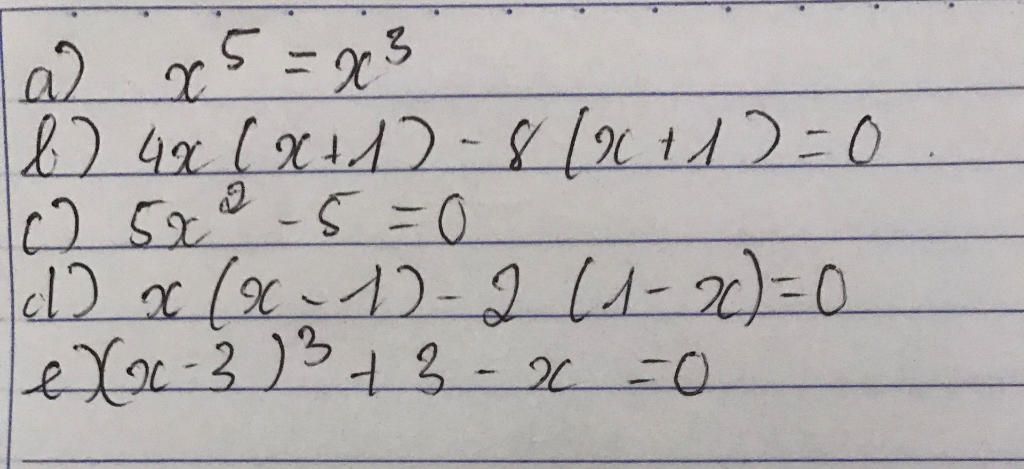 a) x⁵ = x³
b) 4x(x+1) - 8(x+1) = 0
c) 5x² - 5 = 0
d) x(x-1) - 2(1-x) = 0
e) (x-3)³ + 3 - x = 0